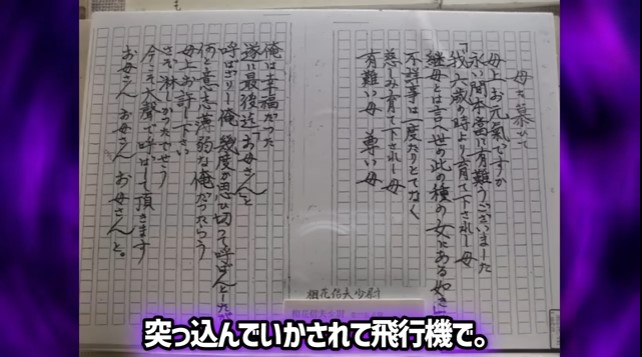 母を慕いて
母上お元氣ですか
永い間本当に有難うございました
「我六歳の時より育て下されし母
継母とは言へ世の此の種の女にある如き
不祥事は一度たりとてなく
慈しみ育て下されし母
有難い母 尊い母
俺は幸福だった
遂に最後迄「お母さん」と
呼ばざりし俺 幾度か思い切って呼ばんとしたが
何と意志薄弱な俺だったらう
母上お許し下さい
さぞ淋しかったでせう
今こそ大聲で呼ばして頂きます
お母さん お母さん お母さんと。
相花信夫少尉
突っ込んでいかされて飛行機で。